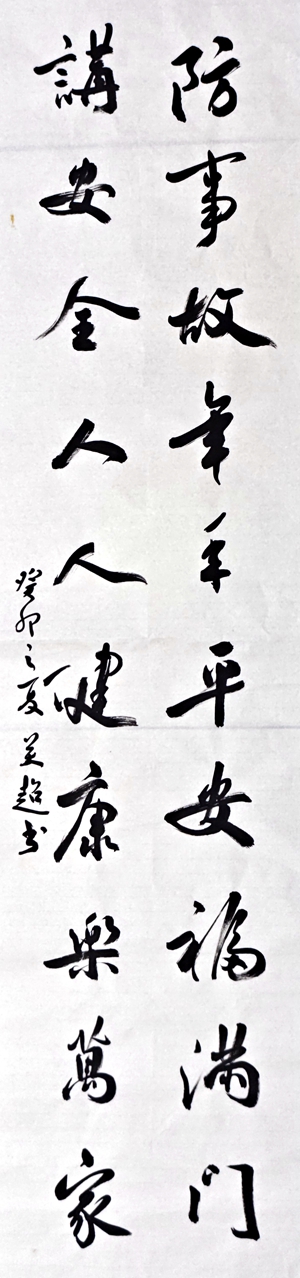 防事故年年平安福满门
講安全人人健康樂萬家
癸卯之夏 吴超书